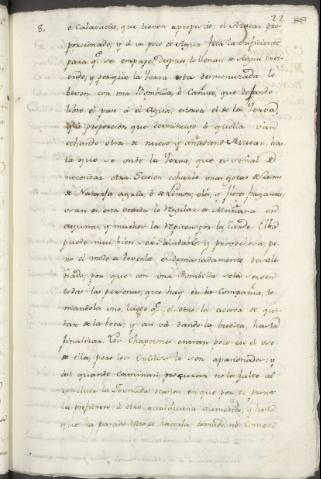 22
8.
ó Calavazas, que tienen apropósito, el Azucar pro-
porcionado, y á un poco de Agua fria la suficiente
para q.e se empape, despues lo llenan de Agua
y porque la Yerva esta demenuzada lo
beven con una Bombilla ó Cañuto, que dejando
libre el paso á el Agua, estorva el de la Yerva
proporcion que disminuyen á aquella van
echando otra de nuevo, y añadiendo Azucar, has-
ta que se the la Yerva, que es señal de
necesitar otra. Suelen echarle unas gotas de Limo
de Naranja agria, ó de Limon, olor, y
usan de esta bevida lo Regular de Mañana en
ayunas, y muchos la repiten por la tarde. Ella
puede mui bien ser saludable, y provechosa, pe-
ro el modo de beverla es demasiadamente desali-
ñado, por que con una Bombilla sola beven
todas las personas, que hay en la Compañia, to-
mandola uno, luego q.e el otro la acava de qui-
tar de la boca, y asi va dando la buelta, hasta
finalizar. Los Chapetones entran poco en el uso
de ella, pero los Criollos le son apasionados, y
asi quando caminan procuran no les falte al
concluir la Jornada
la prefieren á otro qualquiera alimento, y hasta
que ha pasado rato de haverla tomado, no comen